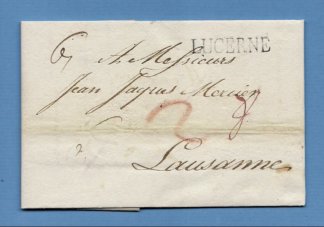 LUCERNE
A Messieurs
Jean Jaques Mercier
à
Lausanne